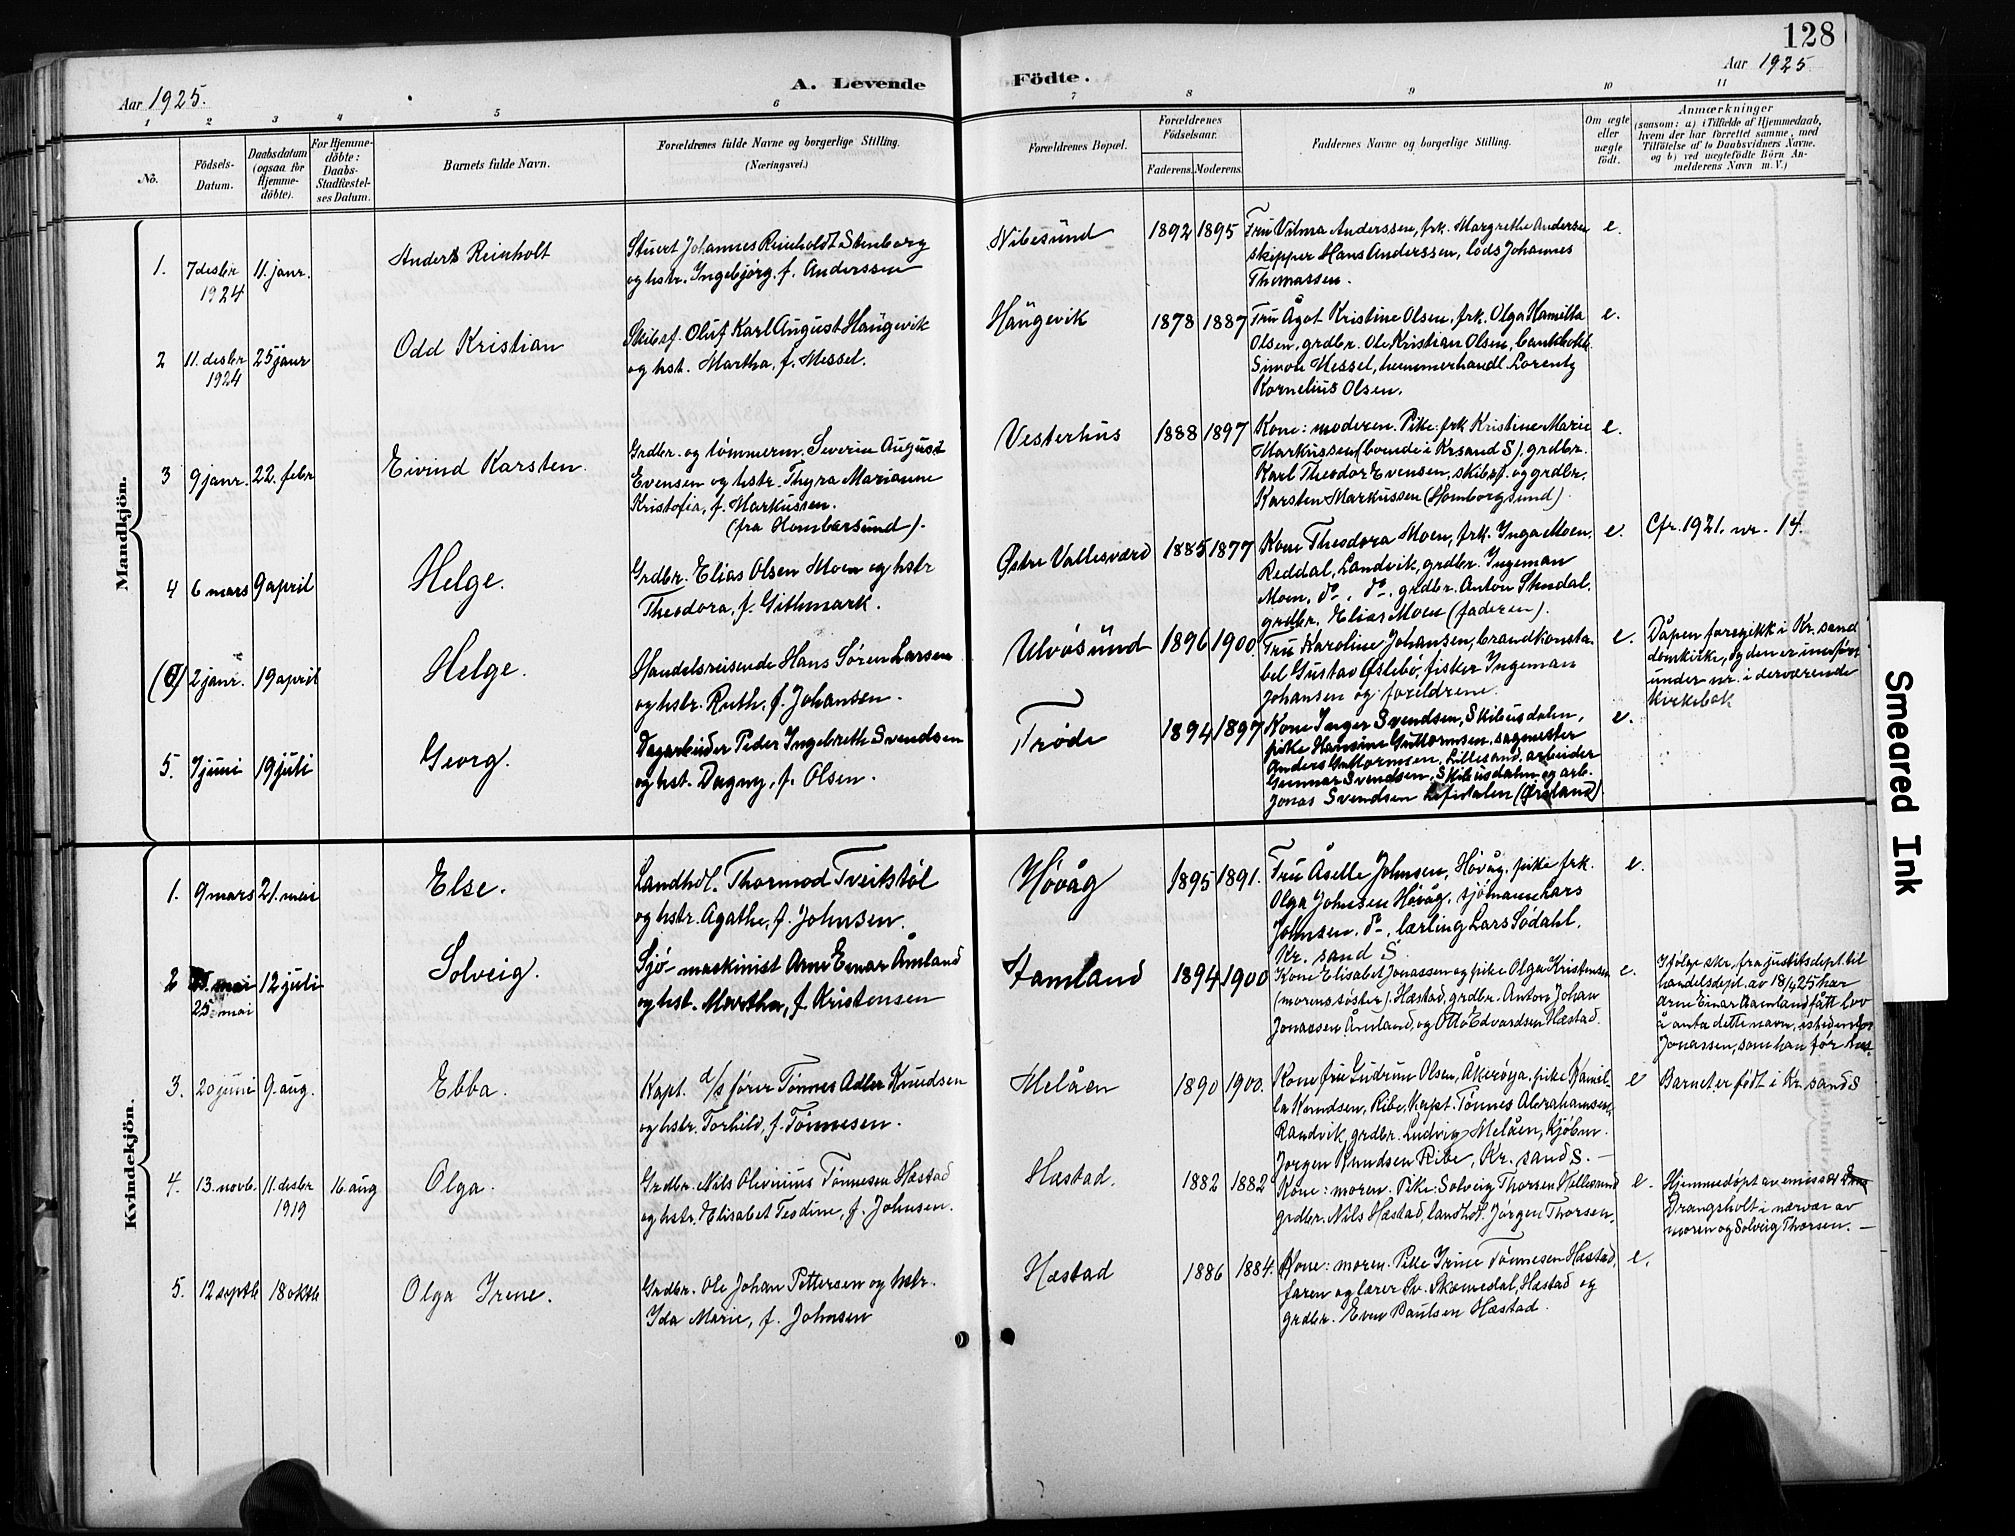 128
Aar 1925.
A. Levende
Födte.
Aar 1925
1 2 3 4 5 6 7 8 9 10 11
No.
Födsels-
Datum.
Daabsdatum
(ogsaa for
Hjemme-
döbte).
For Hjemme-
döbte:
Daabs-
Stadfæstel-
ses Datum.
Barnets fulde Navn.
Forældrenes fulde Navne og borgerlige Stilling.
(Næringsvei.)
Forældrenes Bopæl.
Forældrenes
Födselsaar.
Faderens. Moderens.
Faddernes Navne og borgerlige Stilling.
Om ægte
eller
uægte
födt.
Anmærkninger
(saasom: a) i Tilfælde af Hjemmedaab,
hvem der har forrettet samme, med
Tilföielse af to Daabsvidners Navne,
og b) ved uægtefödte Börn An-
melderens Navn m. V.)
Mandkjön.
1. 7 desbr 1924
11. janr.
Anders Reinholt
Stuert Johannes Reinholdt Stenborg
og hstr. Ingebjørg, f. Anderssen
Vibesund
1892 1895
Fru Vilma Anderssen, frk. Margrethe Andersen
skipper Hans Anderssen, lods Johannes
Thomassen.
e.
2 11. desbr 1924
25 janr
Odd Kristian
Skibsf. Oluf Karl August Haugevik
og hst. Martha, f. Messel.
Haugevik
1878 1887
Fru Ågot Kristine Olsen, frk. Olga Kamilla
Olsen, grdbr. Ole Kristian Olsen, bankbokh.
Simon Messel, hummerhandl. Lorentz
Kornelius Olsen.
e.
3 9 janr. 22. febr
Eivind Karsten.
Grdbr. og tømmerm. Severin August
Evensen og hstr. Thyra Marianne
Kristofia, f. Markussen.
(fra Homborsund).
Vesterhus
1888 1897
Kone: moderen. Pike: frk Kristine Marie
Markussen (boende i Krsand S), grdbr.
Karl Theodor Evensen, skibsf. og grdbr.
Karsten Markussen (Homborgsund).
e.
4 6 mars 9 april
Helge.
Grdbr. Elias Olsen Moen og hstr
Theodora, f. Githmark.
Østre Vallesværd
1885 1877
Kone Theodora Moen, frk. Inga Moen,
Reddal, Landvik, grdbr. Ingeman
Moen, do, do, grdbr. Anton Stendal,
grdbr. Elias Moen (faderen).
e.
Cfr. 1921. nr. 14.
(a) 2 janr. 19 april
Helge.
Handelsreisende Hans Søren Larsen
og hstr. Ruth, f. Johansen.
Ulvøsund
1896 1900.
Fru Karoline Johansen, brandkonsta-
bel Gustav Øslebø, fisker Ingeman
Johansen og foreldrene.
e.
Dåpen foregikk i Kr. sand
domkirke, og den er innført
under nr. i derværende
kirkebok
5. 7 juni 19 juli
Georg.
Dagarbeider Peder Ingebreth Svendsen
og hst. Dagny, f. Olsen.
Trøde
1894 1897
Kone Inger Svendsen, Skibusdalen,
pike Hansine Guttormsen, sagmester
Anders Guttormsen, Lillesand, arbeider
Gunnar Svendsen, Skibusdalen og arb.
Jonas Svendsen (Ørsland)
e.
Kvindekjön.
1. 9 mars 21. mai
Else.
Landhdl. Thormod Tveitstøl
og hstr. Agathe, f. Johnsen.
Høvåg
1895 1891.
Fru Åselle Johnsen, Høvåg, pike frk.
Olga Johnsen Høvåg, sjømann Lars
Johnsen, do, lærling Lars Sødahl,
Kr. sand S.
e.
2 mai 12 juli
25. mai
Solveig.
Sjø-maskinist Arne Einar Åmland
og hst. Martha, f. Kristensen
Stamland
1894 1900
Kone Elisabet Jonassen og pike Olga Kristensen
(morens søster), Hæstad, grdbr. Anton Johan
Jonassen Åmland, og Otto Edvardsen Hæstad.
e.
Ifølge skr. fra justitsdept. til
handelsdept. av 18/4 25 har
Arne Einar Aamland fått lov
å anta dette navn, istedenfor
Jonassen, som han før
3. 20 juni 9. aug.
Ebba.
Kapt. d/s fører Tønnes Adler Knudsen
og hstr. Torhild, f. Tønnesen.
Melåen
1890 1900.
Kone fru Gudrun Olsen, Åkerøya, pike Kamil-
la Knudsen, Ribe, Kapt. Tønnes Abrahamsen,
Randvik, grdbr. Ludvig Melåen, kjøbm.
Jørgen Knudsen Ribe, Kr. sand S. —
e
Barnet er født i Kr. sand S
4. 13. novb. 11. desbr 1919
16. aug
Olga.
Grdbr. Nils Olivinius Tønnesen Hæstad
og hstr. Elisabet Teodine, f. Johnsen.
Hæstad.
1882 1882
Kone: moren. Pike: Solveig Thorsen
grdbr. Nils Hæstad, landhdl. Jørgen Thorsen.
e.
Hjemmedøpt av emissær
Drangsholt i nærvær av
moren og Solveig Thorsen. —
5. 12 septb 18 oktb
Olga Irene.
Grdbr. Ole Johan Pettersen og hstr.
Ida Marie, f. Johnsen
Hæstad
1886 1884.
Kone: moren. Pike Irene Tønnesen Hæstad,
faren og lærer Sv. Skomedal, Hæstad og
grdbr. Even Paulsen Hæstad.
e.
Smeared Ink